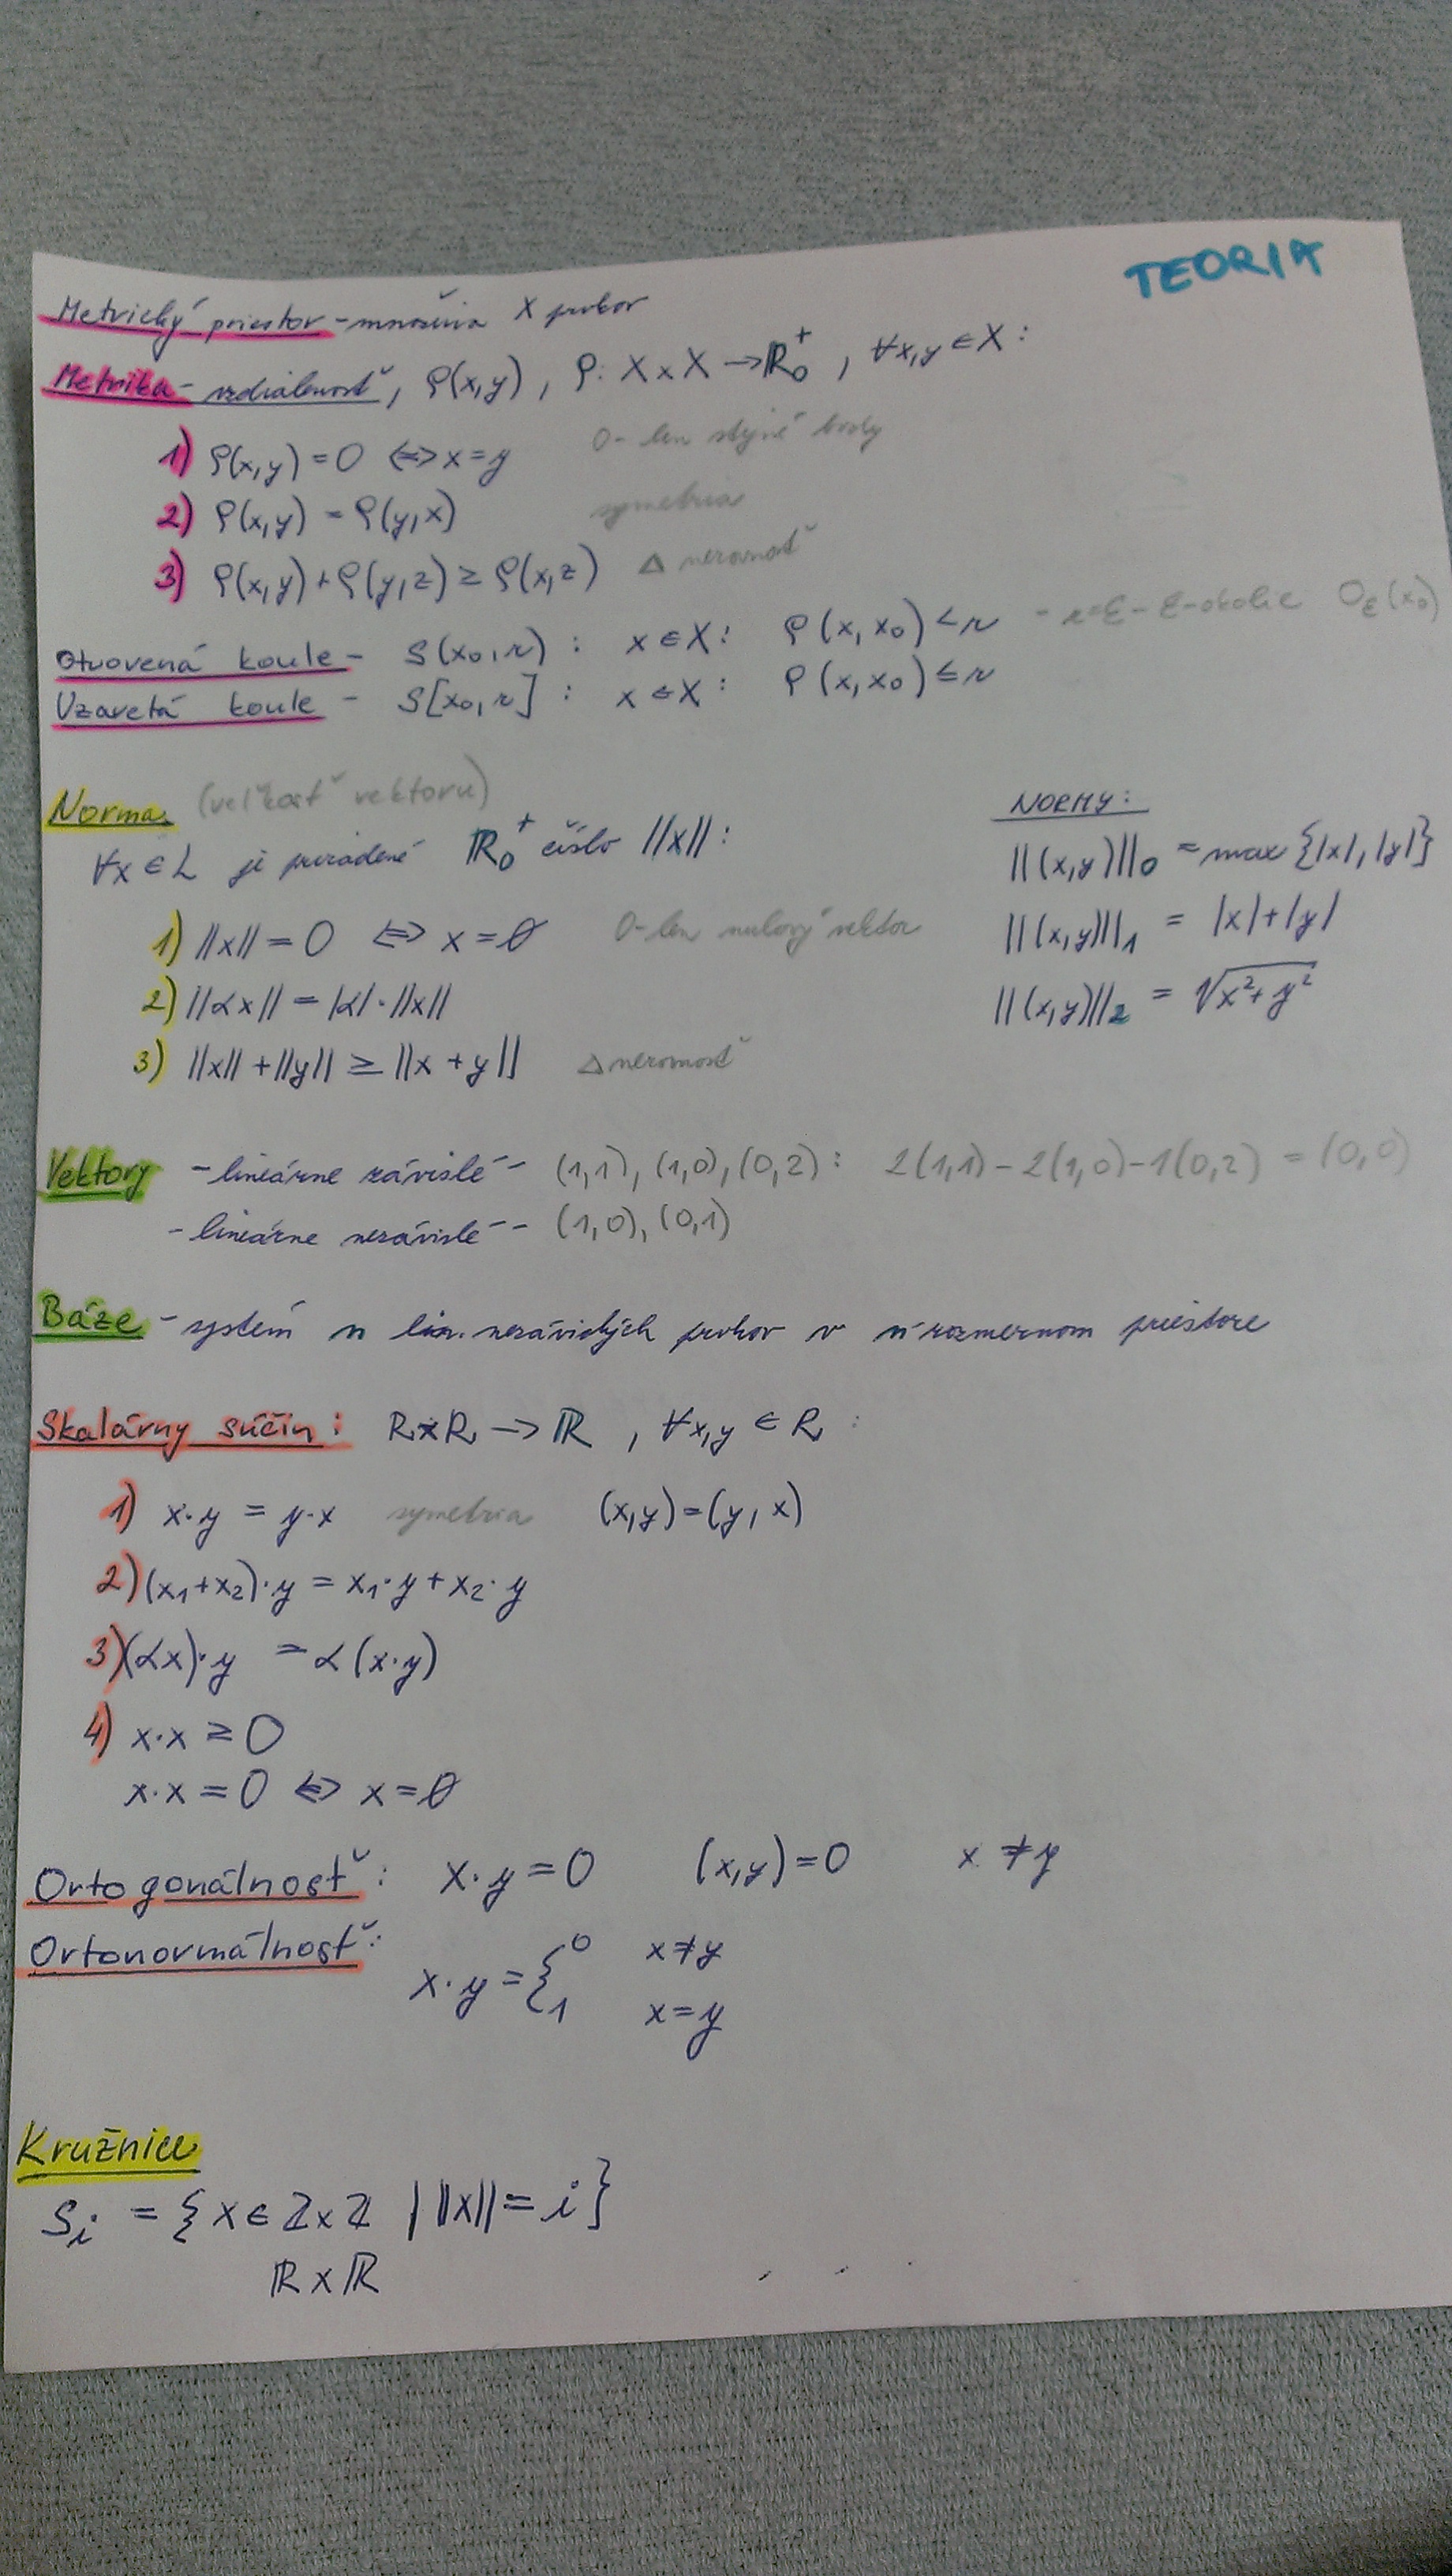 TEORIA
Metrický priestor - množina X prvkov
Metrika - vzdialenosť, ρ(x,y), ρ: X x X → ℝ₀⁺, ∀x,y ∈ X:
1) ρ(x,y) = 0 ⇔ x = y 0 - len stejné body
2) ρ(x,y) = ρ(y,x) symetria
3) ρ(x,y) + ρ(y,z) ≥ ρ(x,z) Δ nerovnosť
Otvorená koule - S(x₀,r) : x ∈ X : ρ(x,x₀) < r - r=ε - ε-okolie O_ε(x₀)
Uzavretá koule - S[x₀,r] : x ∈ X : ρ(x,x₀) ≤ r
Norma (veľkosť vektoru)
∀x ∈ L je priradené ℝ₀⁺ číslo ||x||:
1) ||x|| = 0 ⇔ x = 0 0 - len nulový vektor
2) ||αx|| = |α| · ||x||
3) ||x|| + ||y|| ≥ ||x + y|| Δ nerovnosť
NORMY:
||(x,y)||₀ = max {|x|, |y|}
||(x,y)||₁ = |x| + |y|
||(x,y)||₂ = √(x² + y²)
Vektory - lineárne závislé - (1,1), (1,0), (0,2) : 2(1,1) - 2(1,0) - 1(0,2) = (0,0)
- lineárne nezávislé - (1,0), (0,1)
Báze - systém n lin. nezávislých prvkov v n rozmernom priestore
Skalárny súčin: R x R → ℝ, ∀x,y ∈ R :
1) x·y = y·x symetria (x,y) = (y,x)
2) (x₁+x₂)·y = x₁·y + x₂·y
3) (αx)·y = α(x·y)
4) x·x ≥ 0
x·x = 0 ⇔ x = 0
Ortogonálnosť: x·y = 0 (x,y) = 0 x ≠ y
Ortonormálnosť: x·y = { 0 x ≠ y
1 x = y
Kružnice
Sᵢ = {x ∈ ℤ x ℤ | ||x|| = i}
ℝ x ℝ